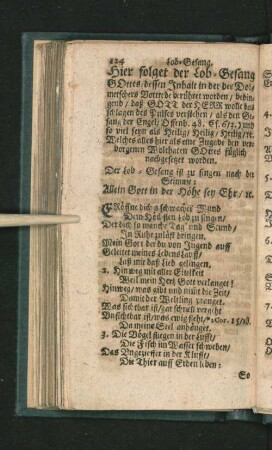 124 Lob-Gesang.
Hier folget der Lob-Gesang
GOttes/ dessen Inhalt in der
Vorrede berühret worden/
daß GOTT der HERR wolle das
schlagen des Pulses verstehen/ als den Ge-
sang der Engel/ Offenb. 48. Es. 6/2.) und
so viel seyn als Heilig/ Heilig/ Heilig/ rc.
Welches alles hier als eine Zugabe den ver-
borgenen Wolthaten GOttes füglich
nachgesetzet worden.
Der Lob-Gesang ist zu singen nach der
Stimme:
Allein Gott in der Höhe sey Ehr/ rc.
ERöffne dich/ schwacher Mund
Dem Höchsten Lob zu singen/
Der dich so manche Tag und Stund/
In Ruhe zuläst bringen.
Mein Gott der du von Jugend auff
Geleitet meines Lebens Lauff/
Laß mir daß Lied gelingen.
2. Hinweg mit aller Eitelkeit
Weil mein Hertz Gott verlanget!
Hinweg/ was gibt und nützt die Zeit/
Damit der Weltling pranget.
Was sichtbar ist/ gar schnell vergeht
Unsichtbar ist/ was ewig steht/ Cor.
Da meine Seel anhänget.
3. Die Vögel fliegen in der Lufft/
Die Fisch im Wasser schweben/
Das Ungeziefer in der Klufft/
Die Thier auff Erden leben:
So